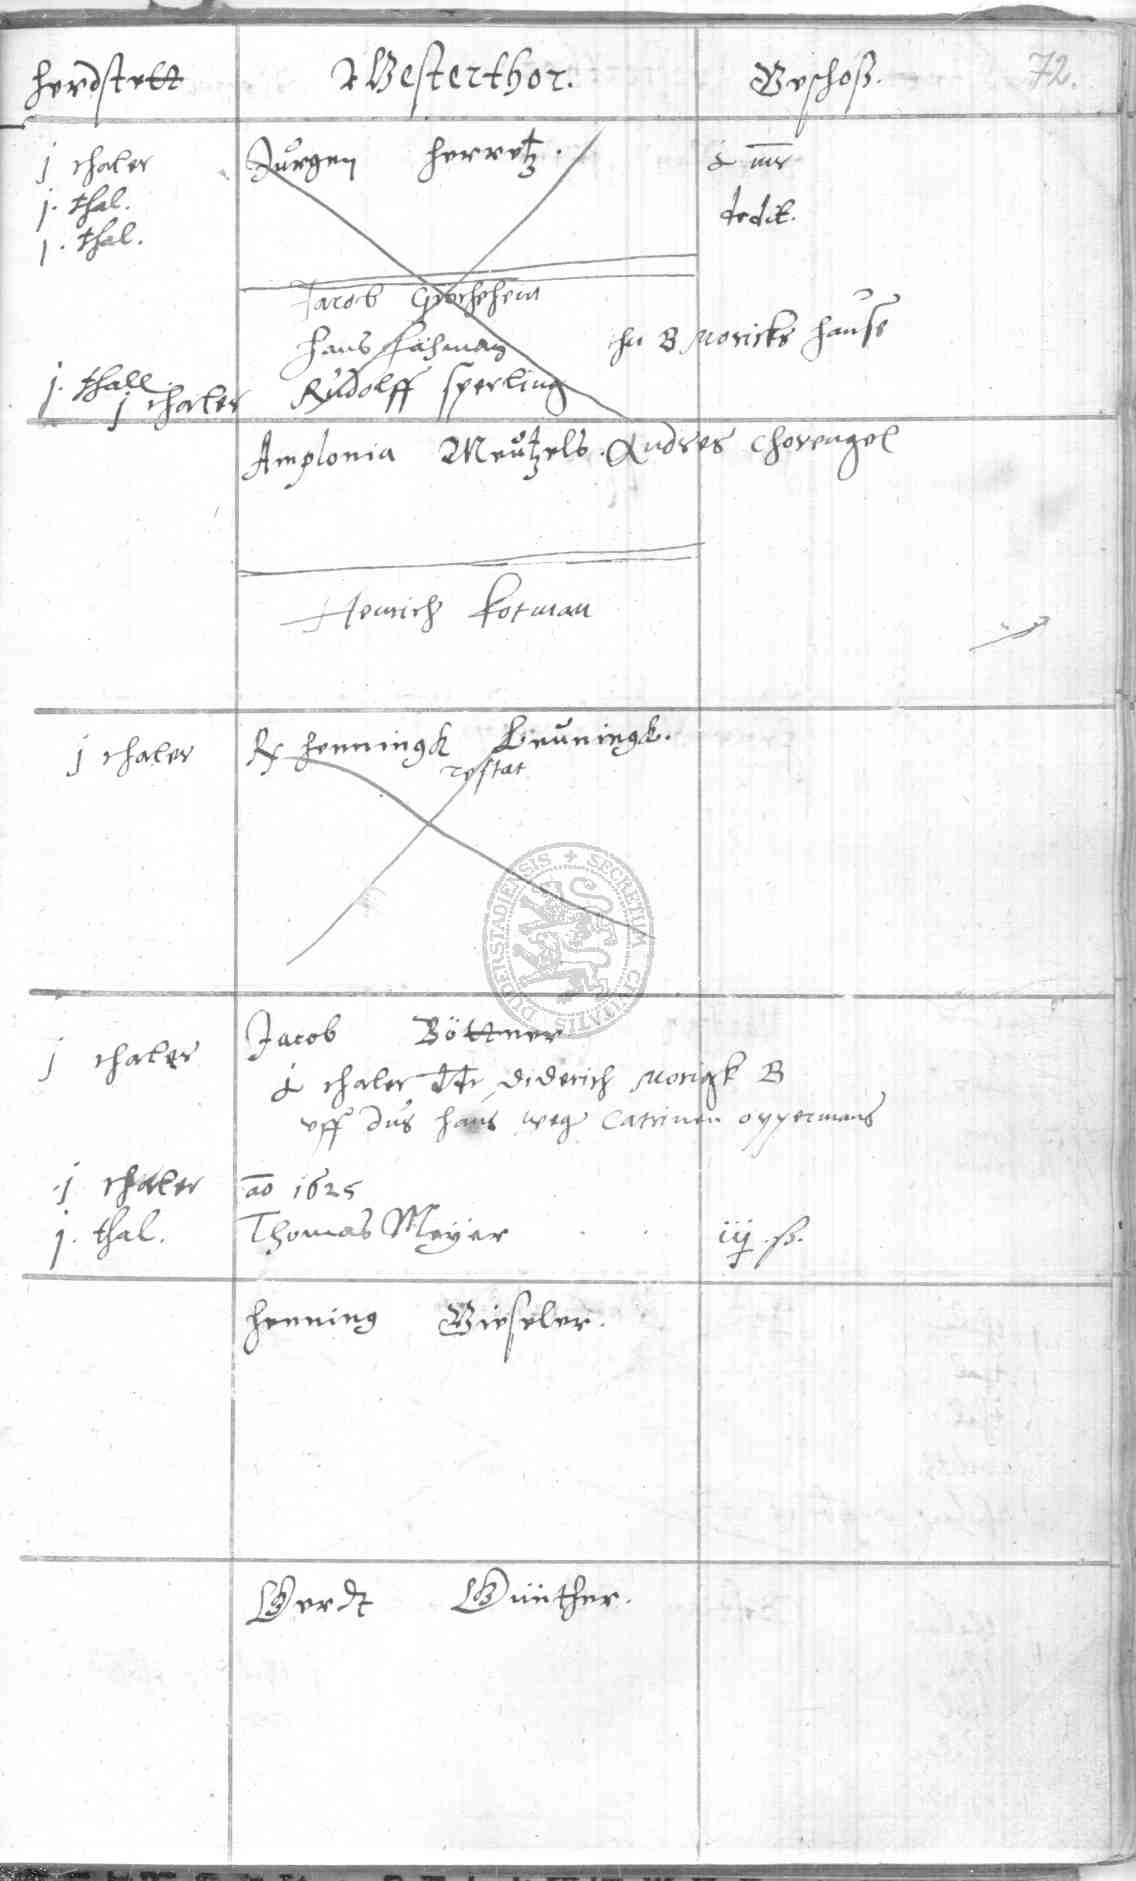 herdstett Westerthor. Geschoß. 72.
j thaler Jürgen herretz. mr
j. thal. dedit.
j. thal.
Jacob
hans in B Moricks hause
j. thall
j thaler Rudolff sperling
Amplonia Meützels. Andres thorengel
Henrich kotman
j thaler henningk Breüningk.
restat
SECRETUM CIVITATIS DUDERSTADIENSIS
j thaler Jacob Böttner
thaler diderich Morigk B
uff dus haus weg Catrinen oppermans
j thaler ao 1625
j. thal. Thomas Meÿer iij ß.
henning Gieseler.
Gerdt Günther.